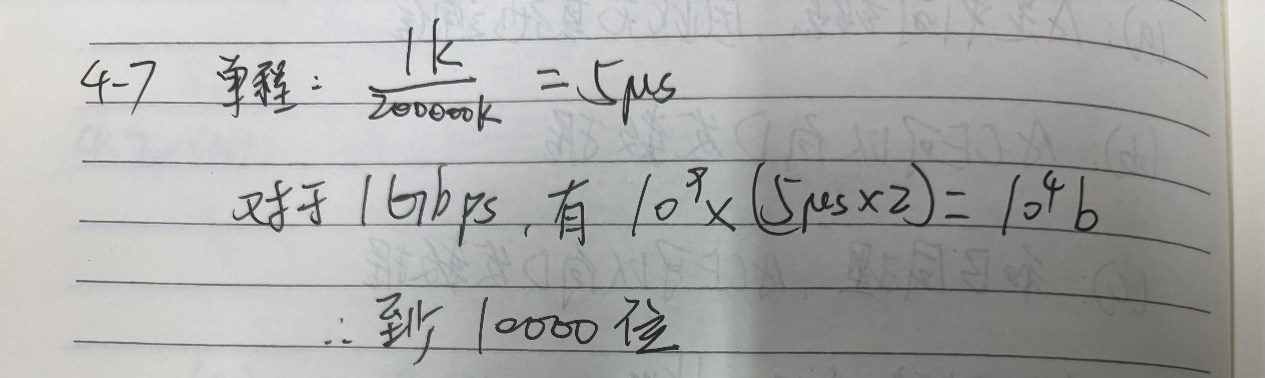 4-7 单程: 1k/200000k = 5μs
对于 1Gbps, 有 10⁹×(5μs×2)= 10⁴b
∴ 至少 10000 位